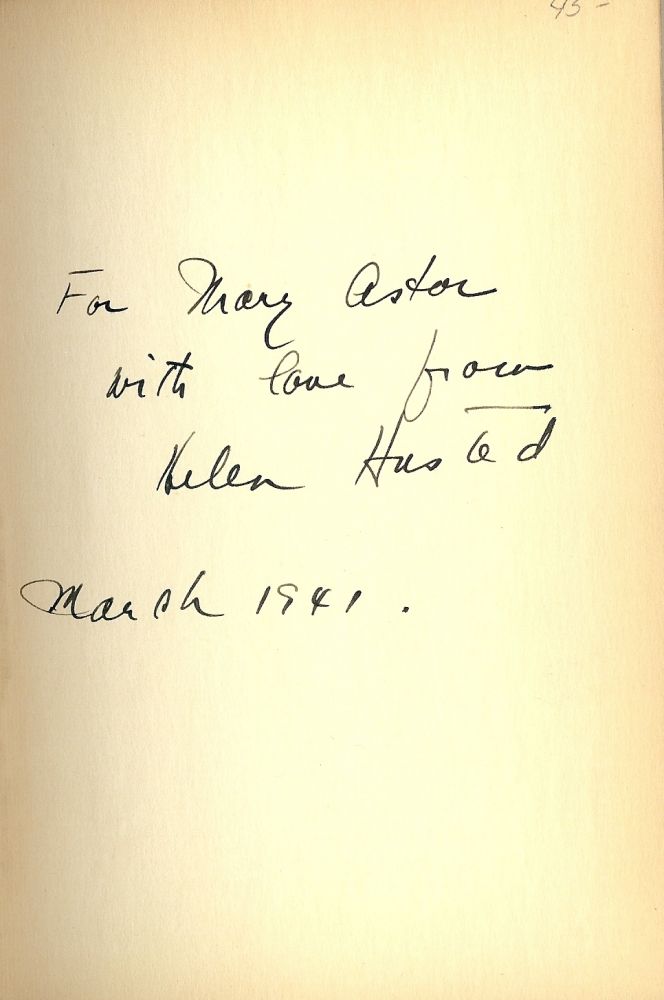 45-
For Mary Astor
with love from
Helen Husted
March 1941.